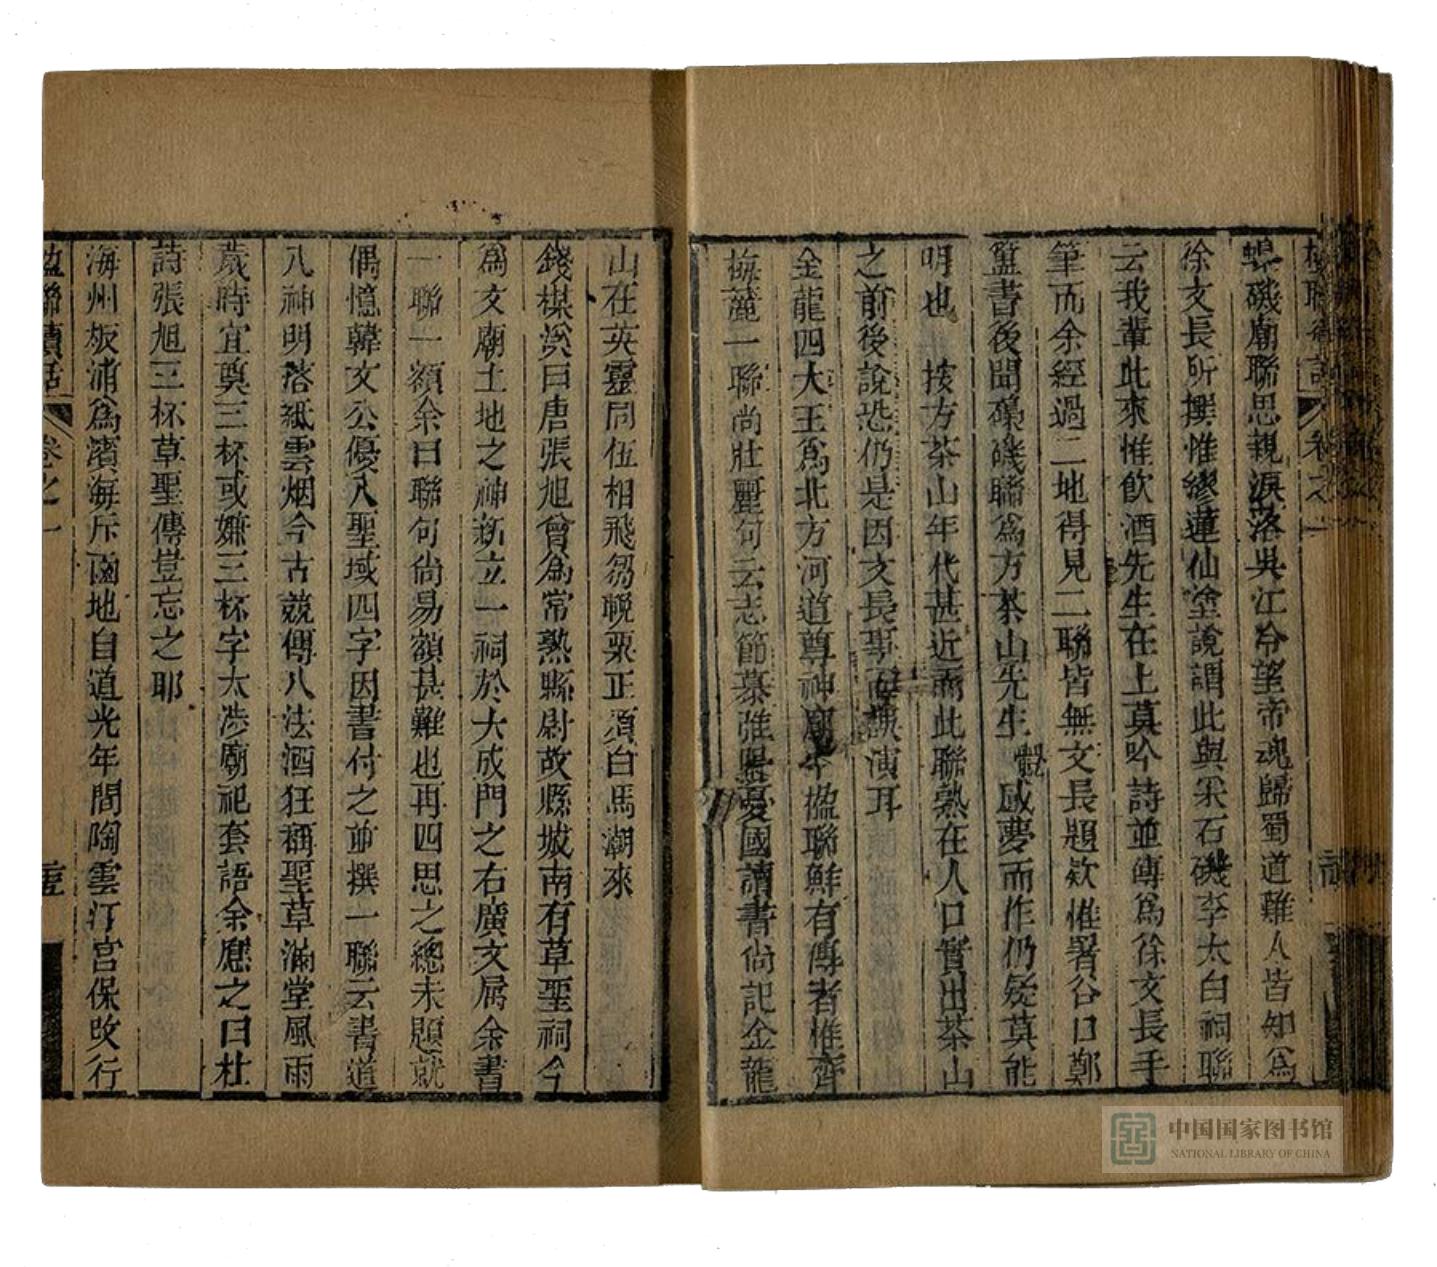 楹聯續話 卷之一
蟂磯廟聯思親淚落吳江冷望帝魂歸蜀道難人皆知為
徐文長所撰惟繆蓮仙塗說謂此與采石磯李太白祠聯
云我輩此來惟飲酒先生在上莫吟詩並傳為徐文長手
筆而余經過二地得見二聯皆無文長題欵惟署谷口鄭
簠書後聞蟂磯聯為方茶山先生 感夢而作仍疑莫能
明也 按方茶山年代甚近而此聯熟在人口實出茶山
之前後說恐仍是因文長事而訛演耳
金龍四大王為北方河道尊神廟中楹聯鮮有傳者惟齊
梅麓一聯尚壯麗句云志節慕張桑憂國讀書尚記金龍
山在英靈同伍相飛芻輓粟正須白馬潮來
錢楳溪曰唐張旭曾為常熟縣尉故縣城南有草聖祠今
為文廟土地之神新立一祠於大成門之右廣文屬余書
一聯一額余曰聯句尚易額甚難也再四思之總未題就
偶憶韓文公優入聖域四字因書付之並撰一聯云書道
入神明落紙雲烟今古競傳八法酒狂稱聖草滿堂風雨
歲時宜奠三杯或嫌三杯字太涉廟祀套語余應之曰杜
詩張旭三杯草聖傳豈忘之耶
海州板浦為濱海斥鹵地自道光年間陶雲汀宮保改行
楹聯續話 卷之一
中国国家图书馆
NATIONAL LIBRARY OF CHINA